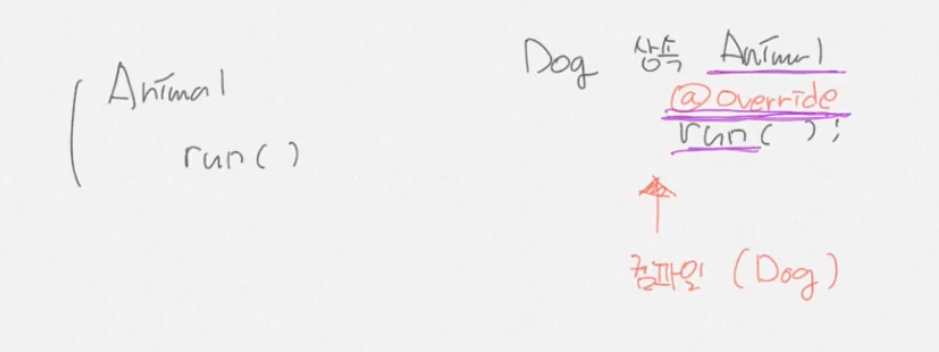 Animal
run ( )
Dog 상속 Animal
@override
run ( ) ;
컴파일 (Dog)